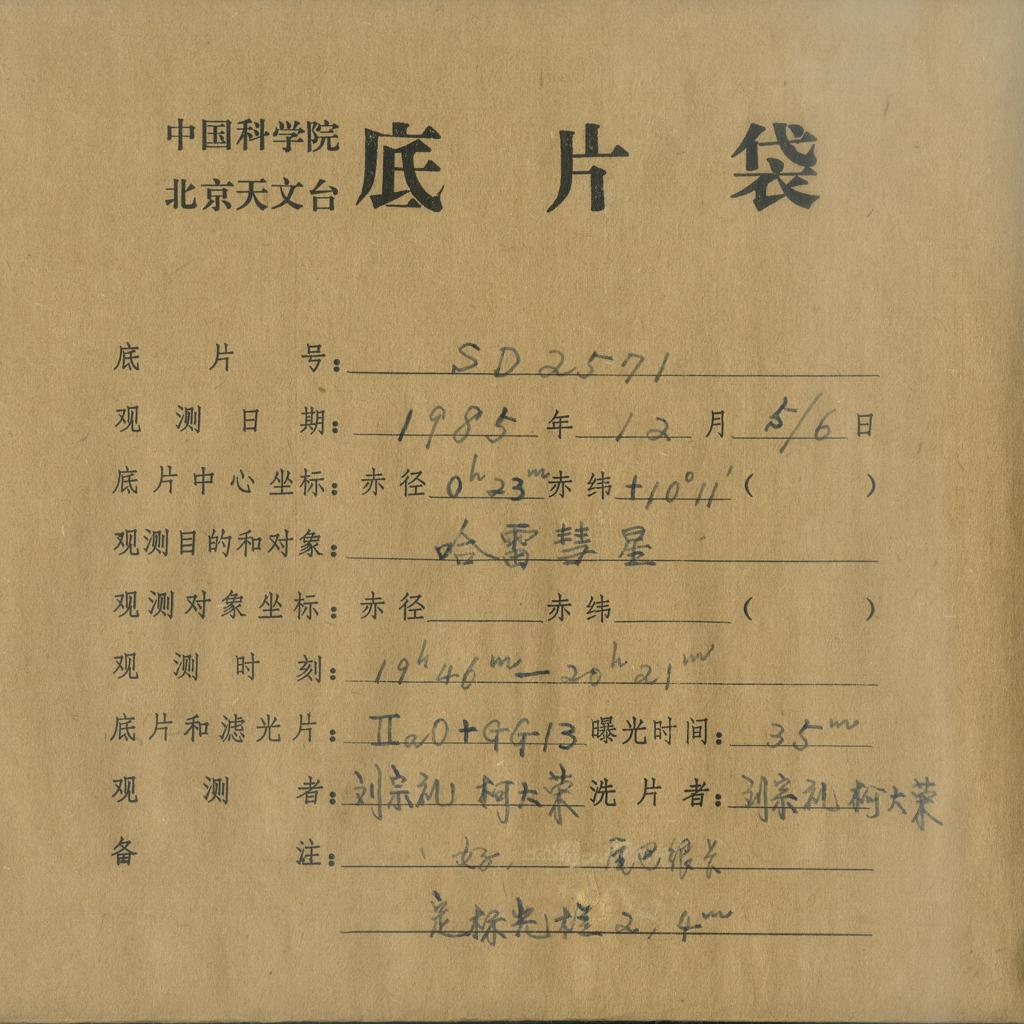 中国科学院
北京天文台 底片袋
底片号：SD2571
观测日期：1985年12月5/6日
底片中心坐标：赤径0ʰ23ᵐ赤纬+10°11′（ ）
观测目的和对象：哈雷彗星
观测对象坐标：赤径 赤纬 （ ）
观测时刻：19ʰ46ᵐ—20ʰ21ᵐ
底片和滤光片：ⅡaO+GG13 曝光时间：35ᵐ
观测者：刘宗礼 柯大荣 洗片者：刘宗礼 柯大荣
备注：好， 尾巴很长
定标光楔2，4ᵐ